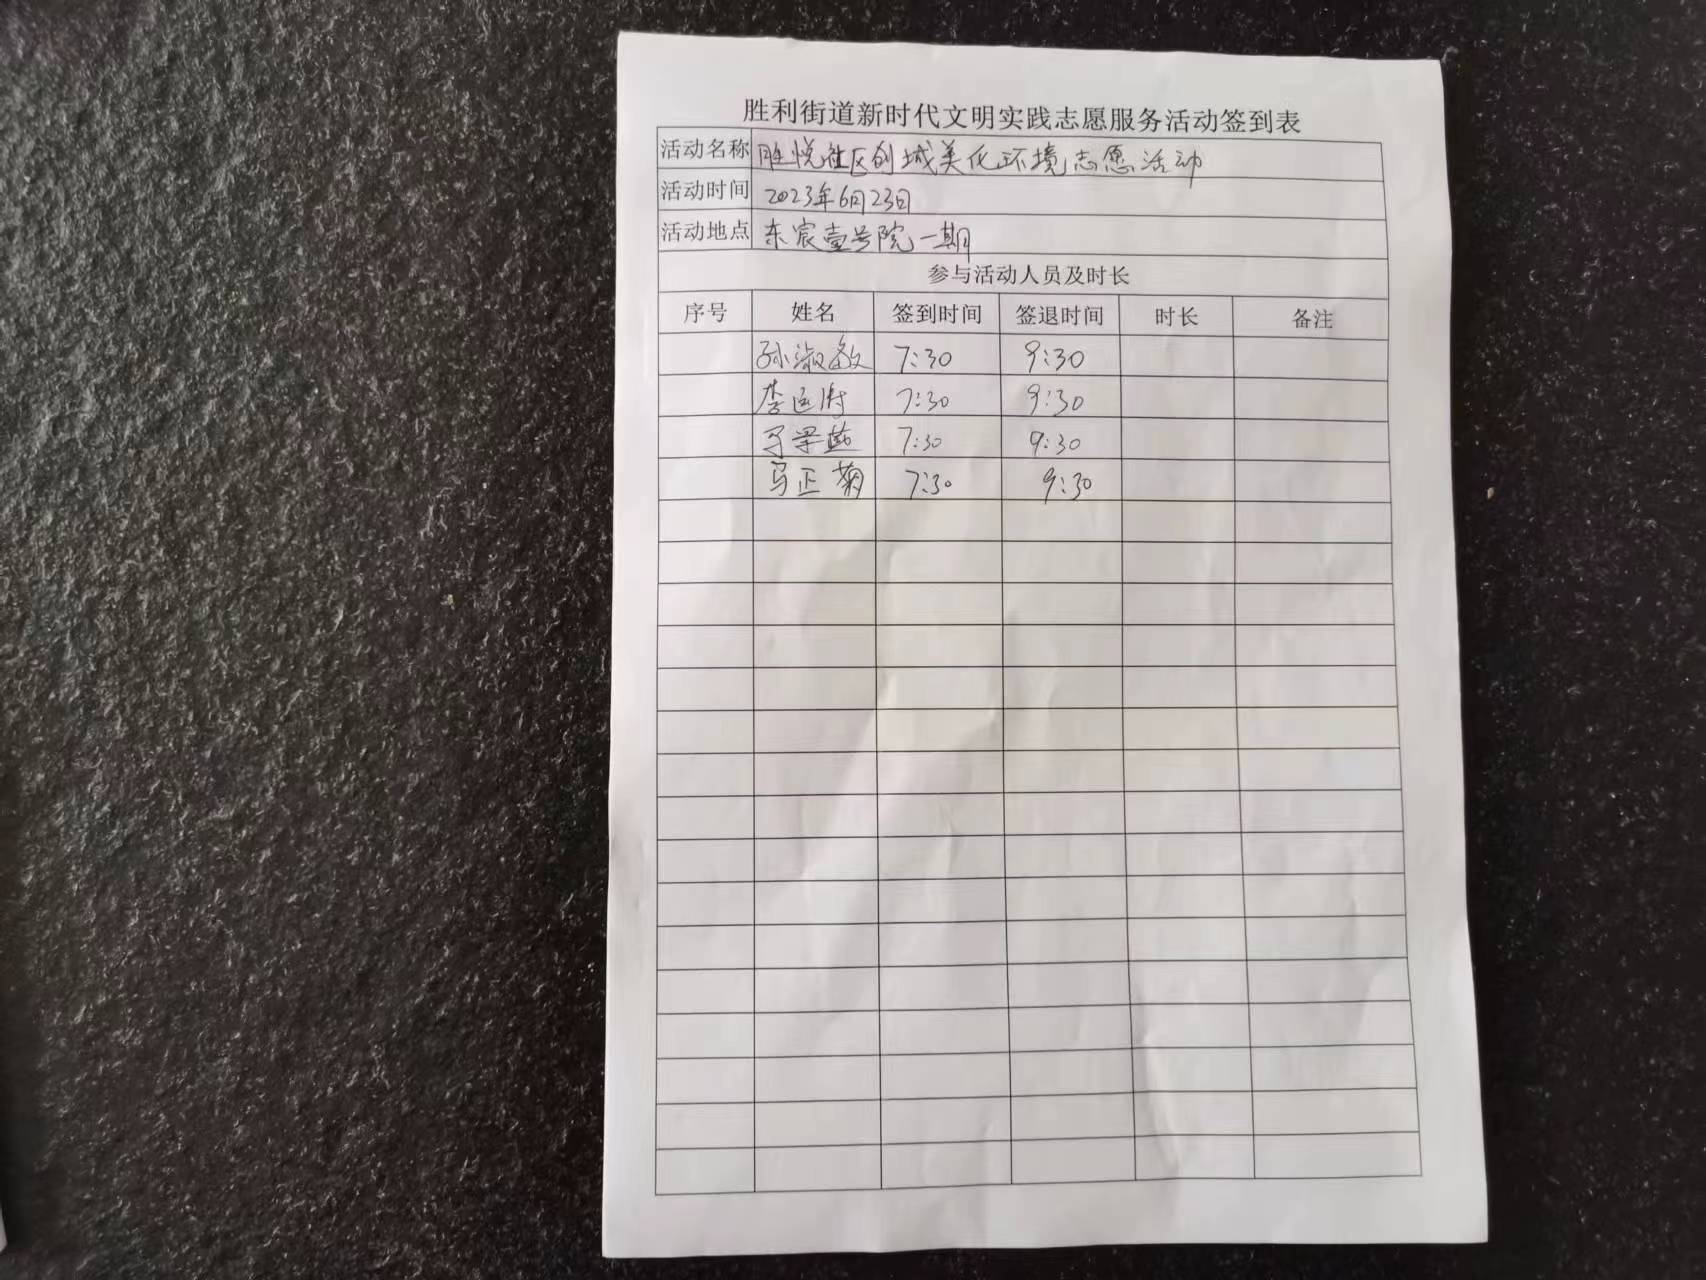 胜利街道新时代文明实践志愿服务活动签到表
活动名称 胜悦社区创城美化环境志愿活动
活动时间 2023年6月23日
活动地点 东宸壹号院一期
参与活动人员及时长
序号 姓名 签到时间 签退时间 时长 备注
孙淑敏 7:30 9:30
李 7:30 9:30
7:30 9:30
马正菊 7:30 9:30